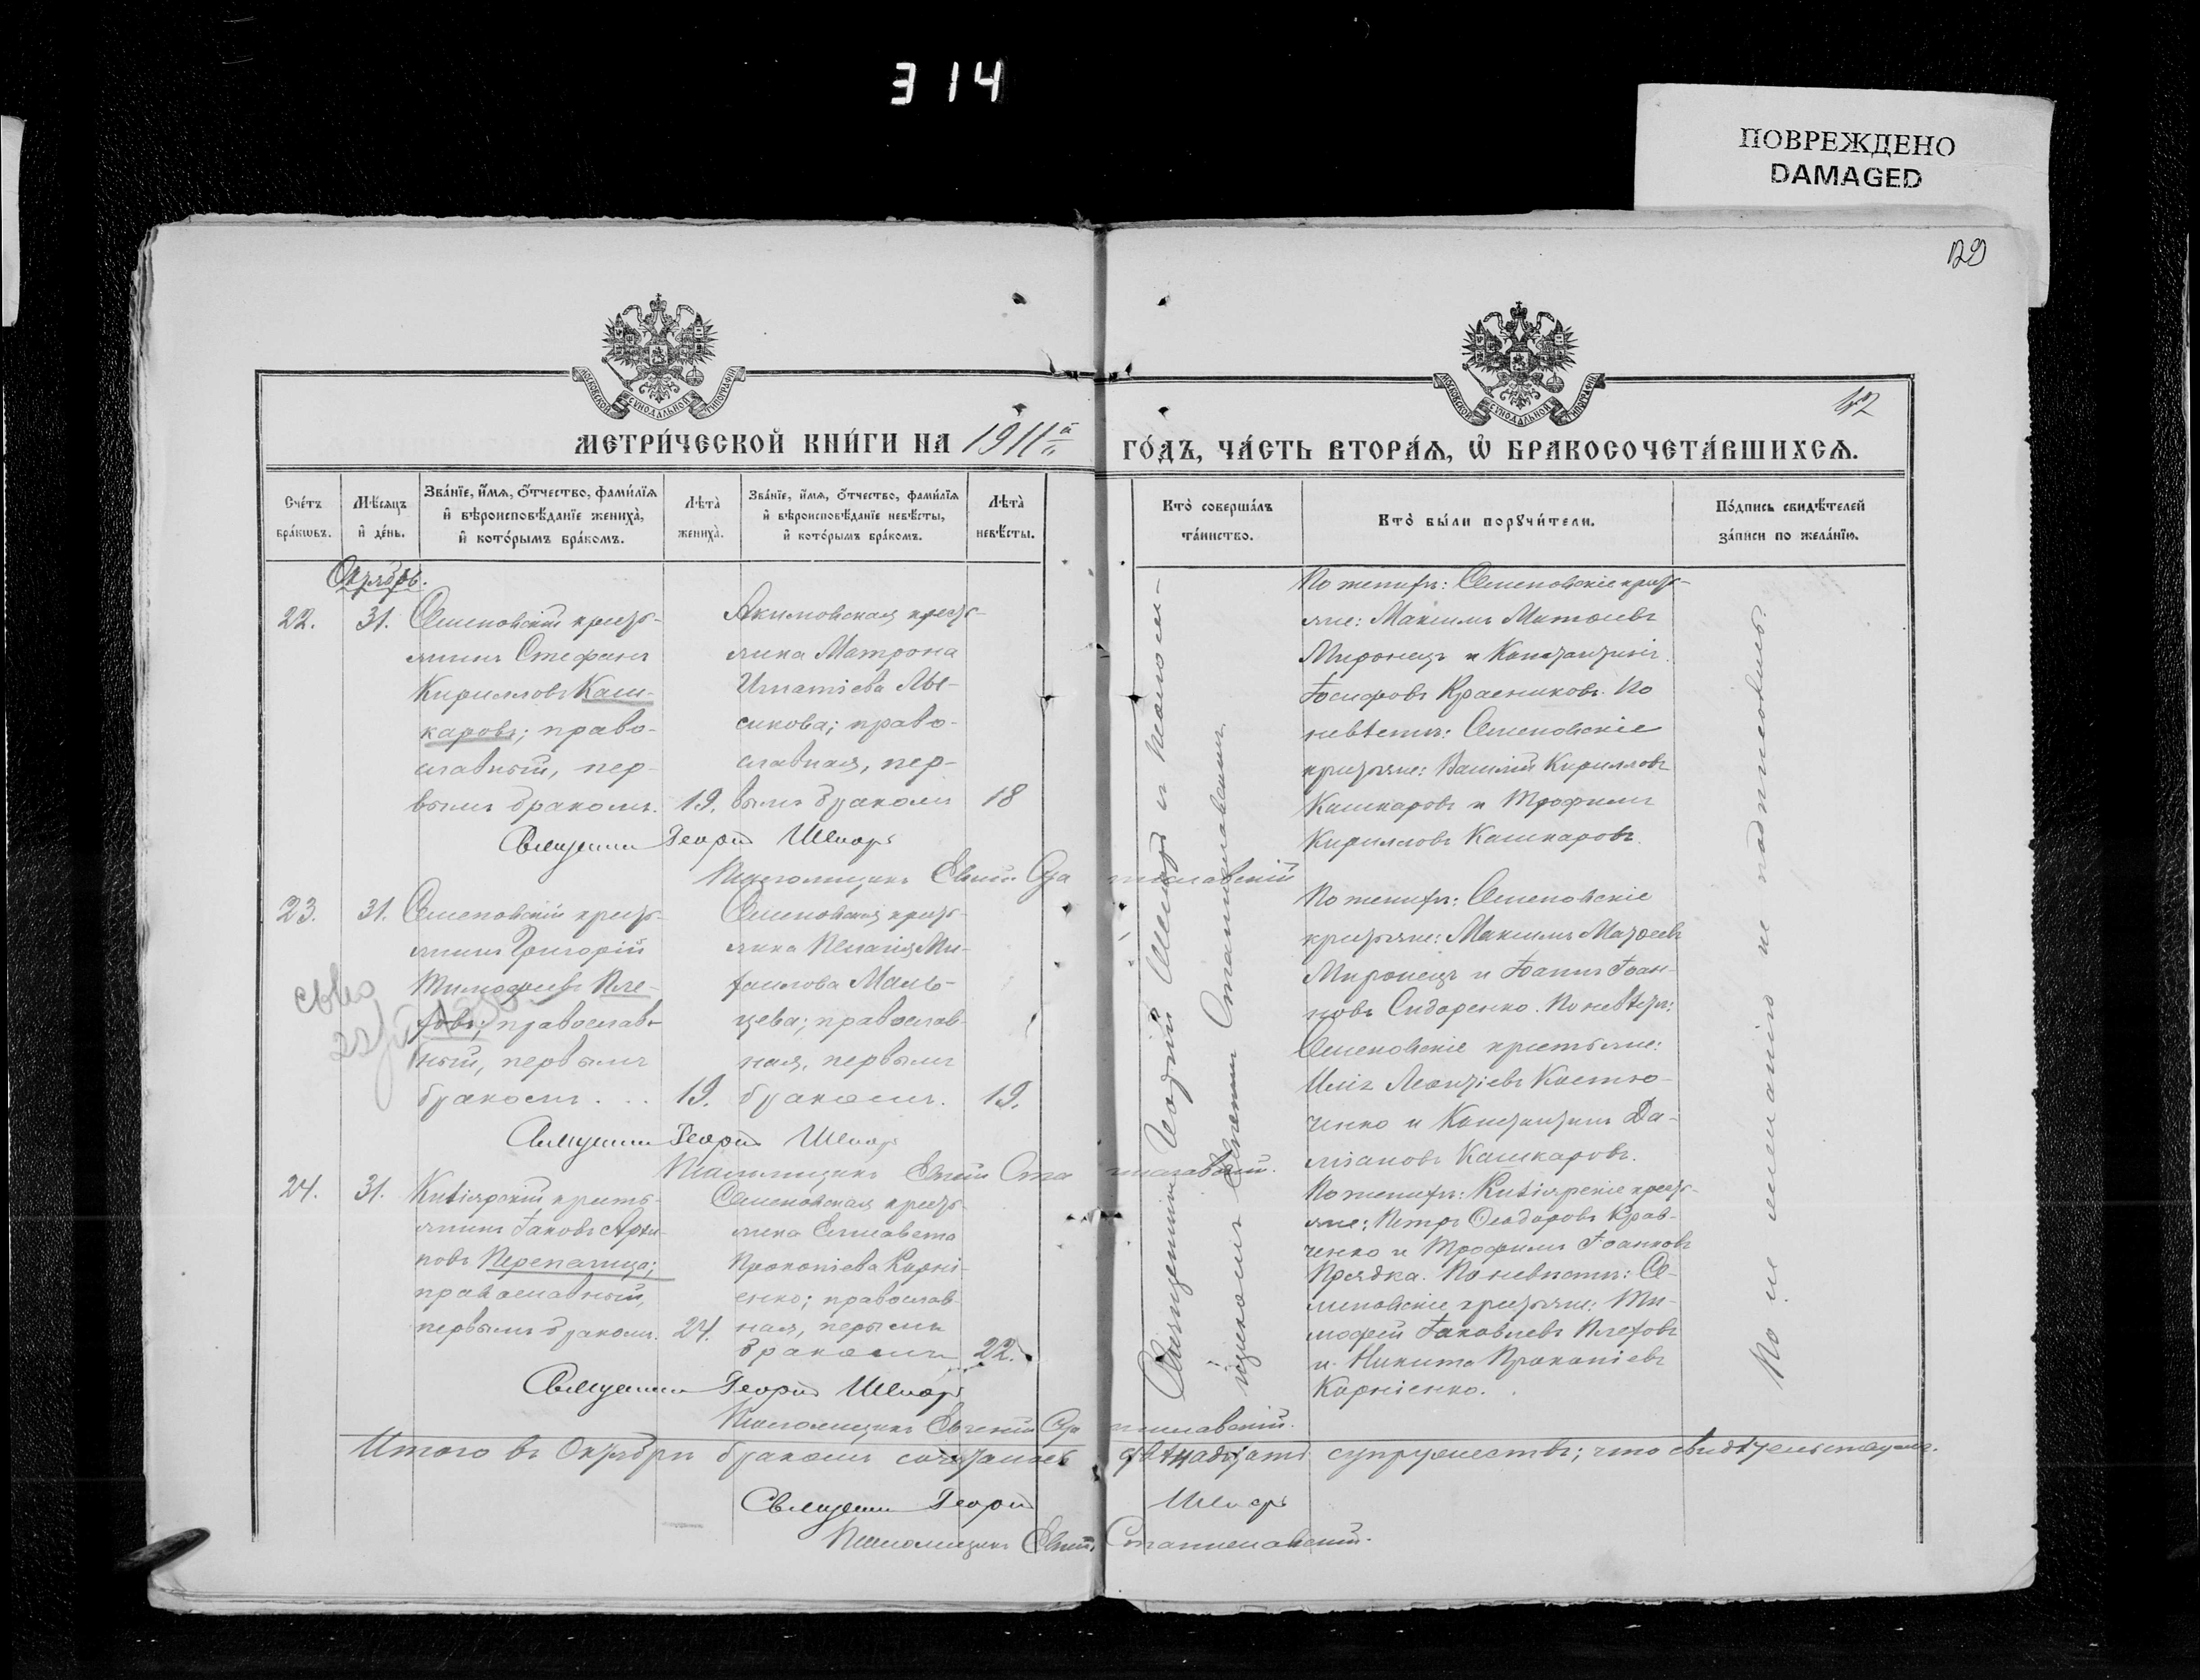 314
ПОВРЕЖДЕНО
DAMAGED
129
МОСКОВСКОЙ СѴНОДАЛЬНОЙ ТИПОГРАФІИ
МОСКОВСКОЙ СѴНОДАЛЬНОЙ ТИПОГРАФІИ
МЕТРИ́ЧЕСКОЙ КНИ́ГИ НА 1911й ГО́ДЪ, ЧА́СТЬ ВТОРА́Ѧ, Ѡ҆ БРАКОСОЧЕТА́ВШИХСѦ.
Сче́тъ бра́кѡвъ.
Мѣ́сѧцъ и҆ де́нь.
Зва́нїе, и҆́мѧ, ѻ҆́тчество, фами́лїѧ и҆ вѣроисповѣ́данїе жениха̀, и҆ кото́рымъ бра́комъ.
Лѣта̀ жениха̀.
Зва́нїе, и҆́мѧ, ѻ҆́тчество, фами́лїѧ и҆ вѣроисповѣ́данїе невѣ́сты, и҆ кото́рымъ бра́комъ.
Лѣта̀ невѣ́сты.
Кто̀ соверша́лъ та́инство.
Кто̀ бы́ли порꙋчи́тели.
По́дпись свидѣ́телей за́писи по жела́нїю.
Октябрь.
22.
31.
Семеновскій кресть-
янинъ Стефанъ
Кирилловъ Каш-
каровъ; право-
славный, пер-
вымъ бракомъ.
19.
Акимовская кресть-
янка Матрона
Игнатіева Лы-
сикова; право-
славная, пер-
вымъ бракомъ
18
По женихѣ: Семеновскіе кресть-
яне: Максимъ Матѳеевъ
Миронецъ и Константинъ
Іосифовъ Красниковъ. По
невѣстѣ: Семеновскіе
крестьяне: Василій Кирилловъ
Кашкаровъ и Трофимъ
Кирилловъ Кашкаровъ.
Священникъ Георгій Шпаръ
Псаломщикъ Евгеній Станиславскій
23.
31.
Семеновскій кресть-
янинъ Григорій
Тимофеевъ Пле-
ховъ; православ-
ный, первымъ
бракомъ . . .
19.
Семеновская кресть-
янка Пелагія Ми-
хаилова Маль-
цева; православ-
ная, первымъ
бракомъ.
19.
По женихѣ: Семеновскіе
крестьяне: Максимъ Матѳеевъ
Миронецъ и Іоаннъ Іоан-
новъ Сидоренко. По невѣстѣ:
Семеновскіе крестьяне:
Илія Леонтіевъ Костю-
ченко и Константинъ Да-
міановъ Кашкаровъ.
Священникъ Георгій Шпаръ
Псаломщикъ Евгеній Станиславскій.
24.
31.
янинъ Іаковъ Архи-
повъ Перепалица;
православный,
первымъ бракомъ.
24.
Семеновская кресть-
янка Елисавета
Прокопіева Корні-
енко; православ-
ная, первымъ
бракомъ
22.
яне: Петръ Ѳеодоровъ Крав-
ченко и Трофимъ Іоанновъ
Прядка. По невѣстѣ: Се-
меновскіе крестьяне: Ти-
мофей Іаковлевъ Плеховъ
и Никита Прокопіевъ
Корніенко.
Священникъ Георгій Шпаръ
Псаломщикъ Евгеній Станиславскій.
Священникъ Георгій Шпаръ и псалом-
щикомъ Евгеніемъ Станиславскимъ.
Итого въ Октябрѣ бракомъ сочеталось двѣнадцать супружествъ; что свидѣтельствуемъ.
Священникъ Георгій Шпаръ
Псаломщикъ Евгеній Станиславскій.